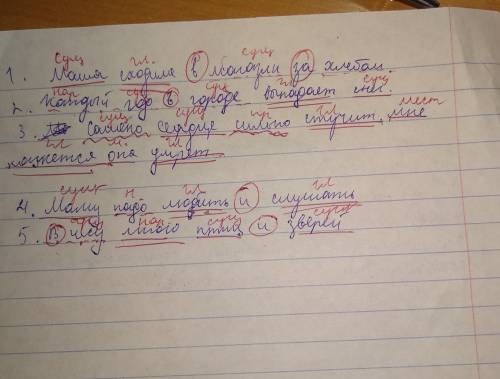 сущ гл. сущ
1. Маша сходила в магазин за хлебом.
нар сущ сущ гл сущ
2. Каждый год в городе выпадает снег.
сущ сущ пр гл мест
3. Самело сердце сильно стучит, мне
гл м. гл
кажется она умрет
сущ н. гл гл
4. Маму надо любить и слушать
сущ нар сущ сущ
5. В лесу много птиц и зверей